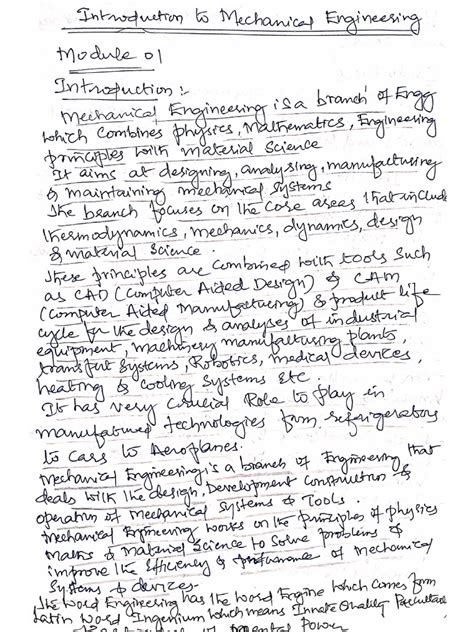 Introduction to Mechanical Engineering
Module 01
Introduction :-
Mechanical Engineering is a branch of Engg
which combines physics, Mathematics, Engineering
principles with material science
It aims at designing, analysing, manufacturing
& maintaining mechanical systems
The branch focuses on the core areas that include
thermodynamics, mechanics, dynamics, design
& material science.
These principles are combined with tools such
as CAD (Computer Aided Design) & CAM
(Computer Aided Manufacturing) & product life
cycle for the design & analyses of industrial
equipment, machinery manufacturing plants,
transport systems, Robotics, medical devices,
heating & cooling systems etc.
It has very crucial Role to play in
manufactured technologies from refrigerators
to cars to Aeroplanes.
Mechanical Engineering is a branch of Engineering that
deals with the design, Development Construction &
operation of Mechanical Systems & Tools.
Mechanical Engineering works on the principles of physics
Maths & Material Science to Solve problems &
improve the Efficiency & performance of Mechanical
Systems & devices.
The word Engineering has the word Engine which comes from
Latin word Ingenium which means Innate Quality
mental Power